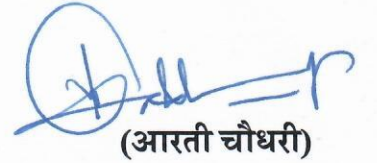 (आरती चौधरी)